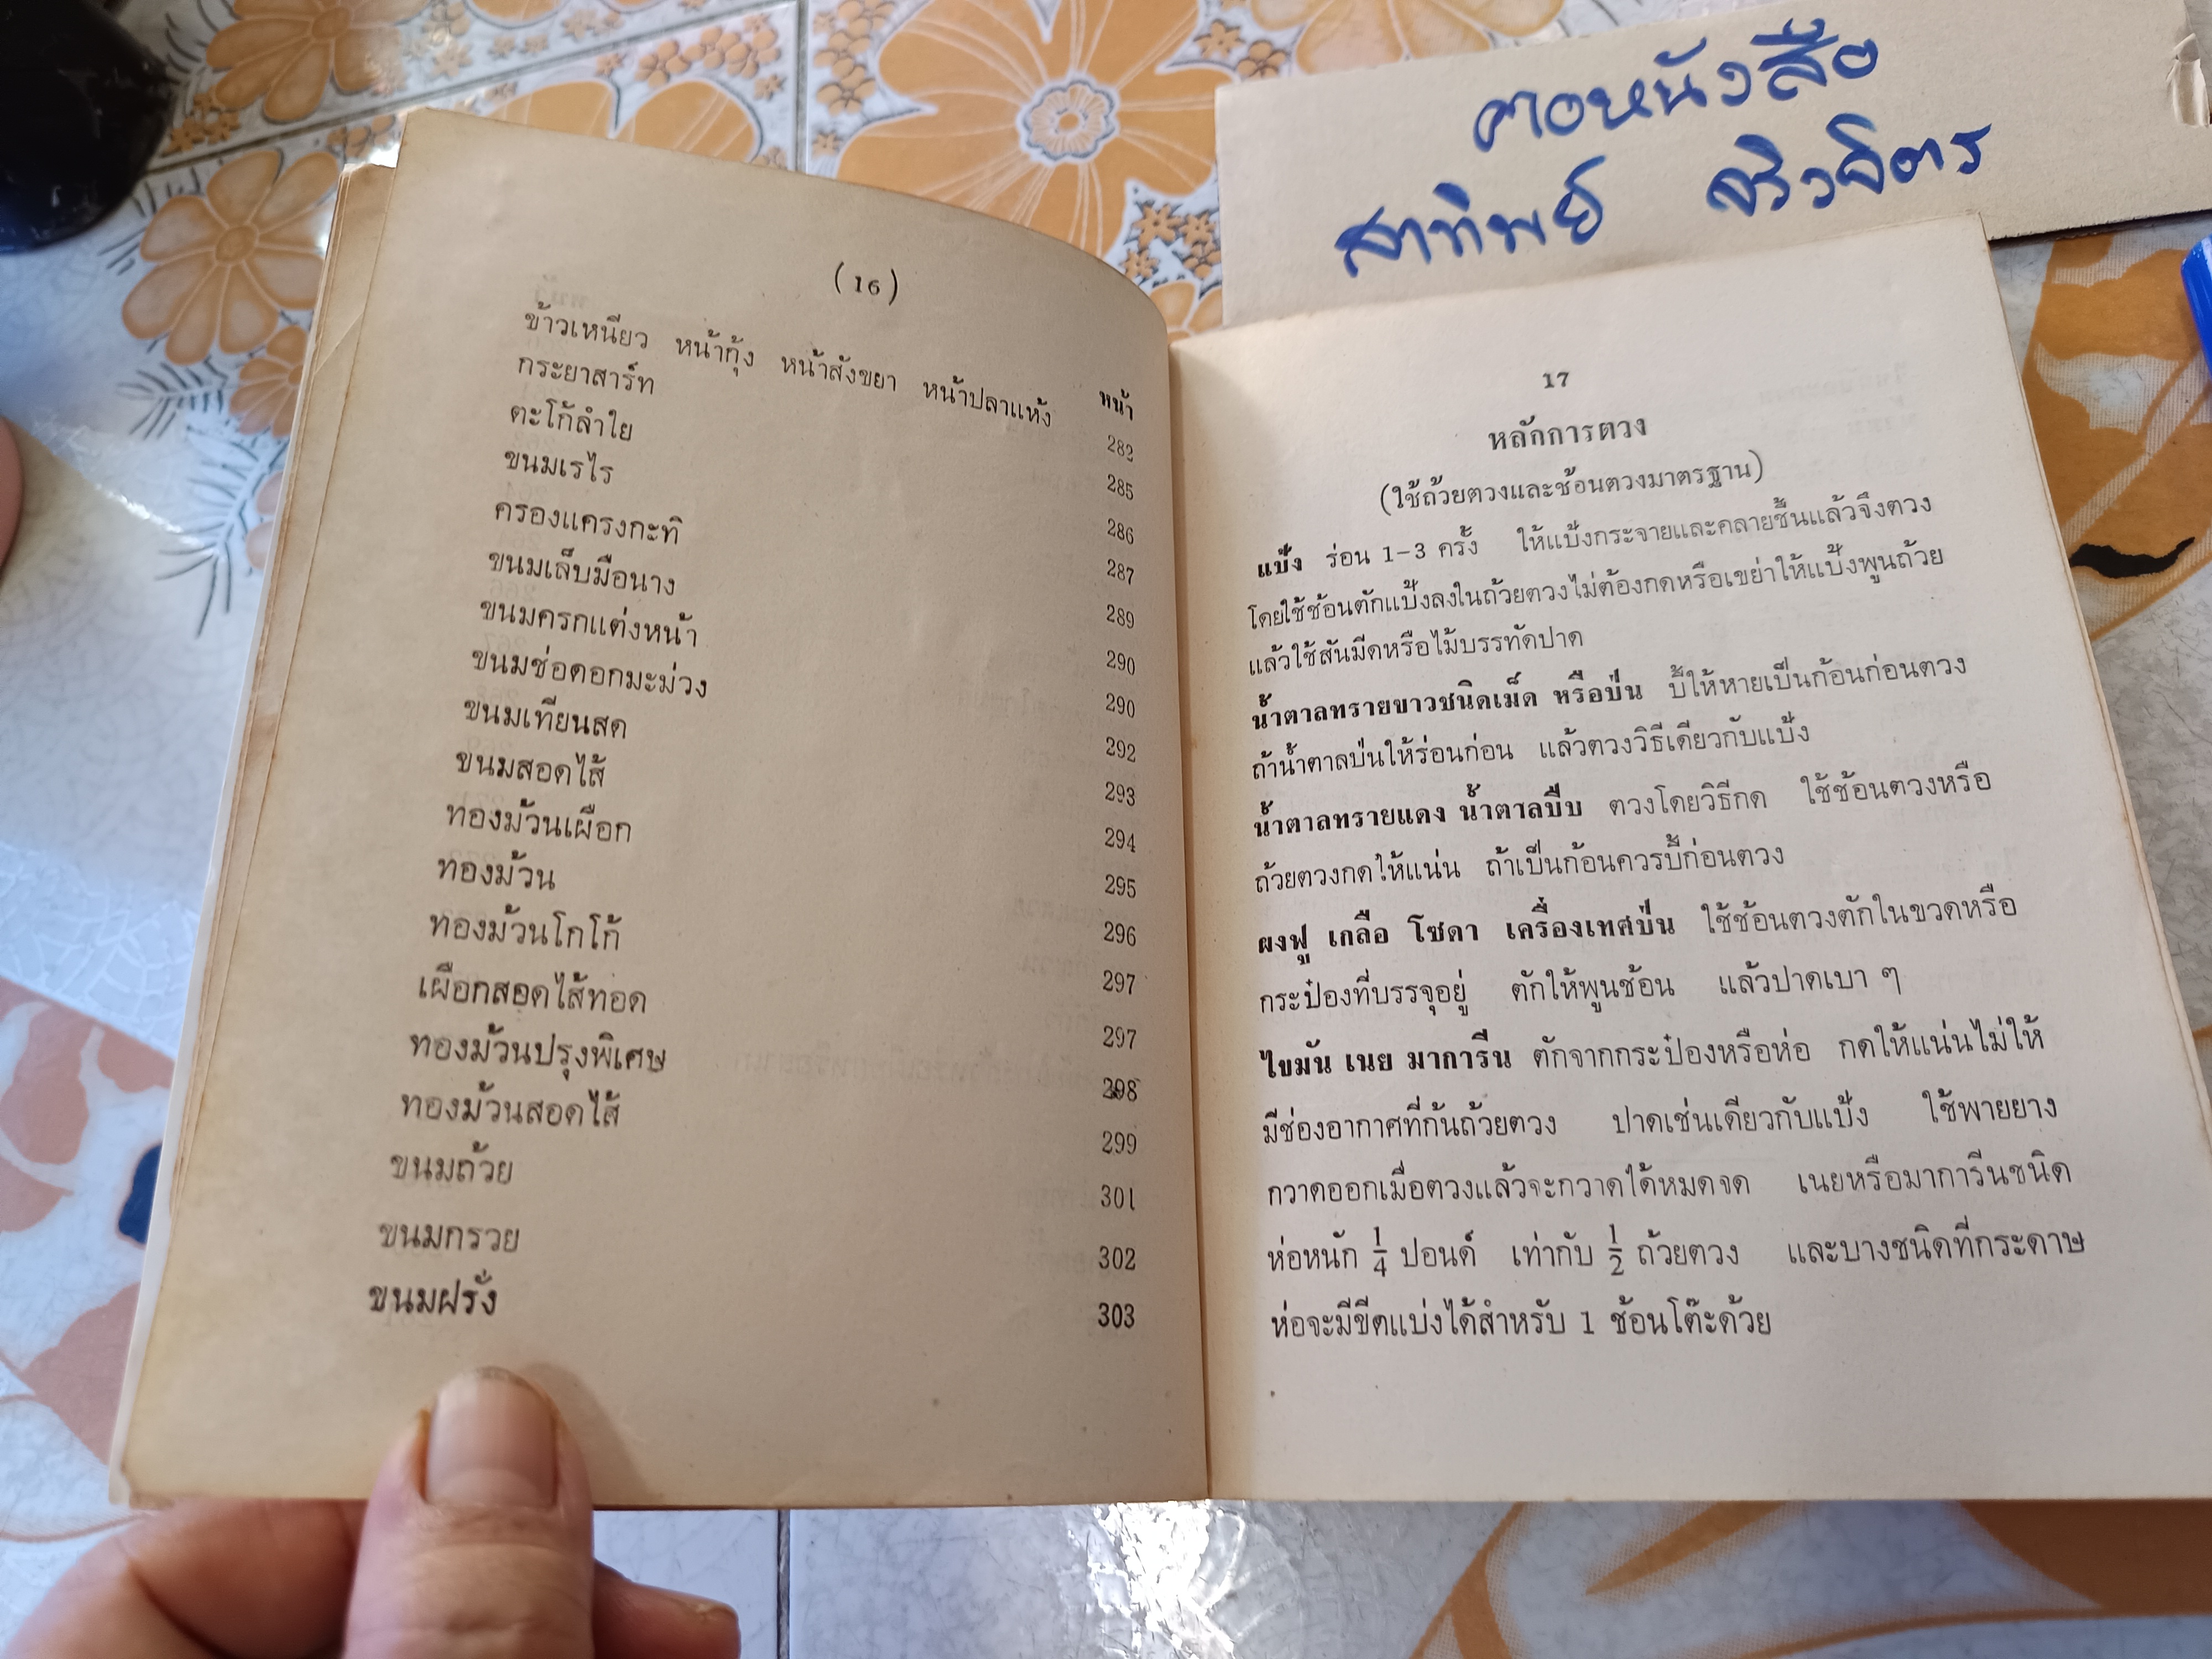 คอหนังสือ
สาทิพย์ จริวจิตร
(16)
หน้า
ข้าวเหนียว หน้ากุ้ง หน้าสังขยา หน้าปลาแห้ง 282
กระยาสาร์ท 285
ตะโก้ลำใย 286
ขนมเรไร 287
ครองแครงกะทิ 289
ขนมเล็บมือนาง 290
ขนมครกแต่งหน้า 290
ขนมช่อดอกมะม่วง 292
ขนมเทียนสด 293
ขนมสอดไส้ 294
ทองม้วนเผือก 295
ทองม้วน 296
ทองม้วนโกโก้ 297
เผือกสอดไส้ทอด 297
ทองม้วนปรุงพิเศษ 298
ทองม้วนสอดไส้ 299
ขนมถ้วย 301
ขนมกรวย 302
ขนมฝรั่ง 303
17
หลักการตวง
(ใช้ถ้วยตวงและช้อนตวงมาตรฐาน)
แป้ง ร่อน 1-3 ครั้ง ให้แป้งกระจายและคลายชื้นแล้วจึงตวง
โดยใช้ช้อนตักแป้งลงในถ้วยตวงไม่ต้องกดหรือเขย่าให้แป้งพูนถ้วย
แล้วใช้สันมีดหรือไม้บรรทัดปาด
น้ำตาลทรายขาวชนิดเม็ด หรือป่น บี้ให้หายเป็นก้อนก่อนตวง
ถ้าน้ำตาลป่นให้ร่อนก่อน แล้วตวงวิธีเดียวกับแป้ง
น้ำตาลทรายแดง น้ำตาลปีบ ตวงโดยวิธีกด ใช้ช้อนตวงหรือ
ถ้วยตวงกดให้แน่น ถ้าเป็นก้อนควรบี้ก่อนตวง
ผงฟู เกลือ โซดา เครื่องเทศป่น ใช้ช้อนตวงตักในขวดหรือ
กระป๋องที่บรรจุอยู่ ตักให้พูนช้อน แล้วปาดเบา ๆ
ไขมัน เนย มาการีน ตักจากกระป๋องหรือห่อ กดให้แน่นไม่ให้
มีช่องอากาศที่ก้นถ้วยตวง ปาดเช่นเดียวกับแป้ง ใช้พายยาง
กวาดออกเมื่อตวงแล้วจะกวาดได้หมดจด เนยหรือมาการีนชนิด
ห่อหนัก 1/4 ปอนด์ เท่ากับ 1/2 ถ้วยตวง และบางชนิดที่กระดาษ
ห่อจะมีขีดแบ่งได้สำหรับ 1 ช้อนโต๊ะด้วย